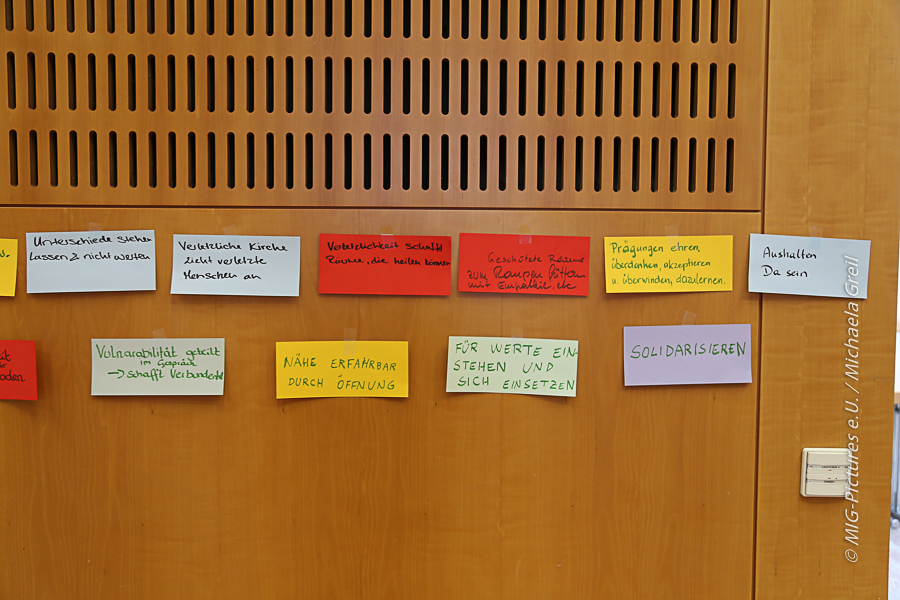 Unterschiede stehen
lassen & nicht werten
Verletzliche Kirche
zieht verletzte
Menschen an
Verletzlichkeit schafft
Räume, die heilen können
Geschützte Räume
zum
mit Empathie, etc
Prägungen ehren,
überdenken, akzeptieren
u. überwinden, dazulernen.
Aushalten
Da sein
oden
Vulnerabilität geteilt
im Gespräch
→ schafft Verbundenheit
NÄHE ERFAHRBAR
DURCH ÖFFNUNG
FÜR WERTE EIN-
STEHEN UND
SICH EINSETZEN
SOLIDARISIEREN
© MIG-Pictures e.U. / Michaela Greil